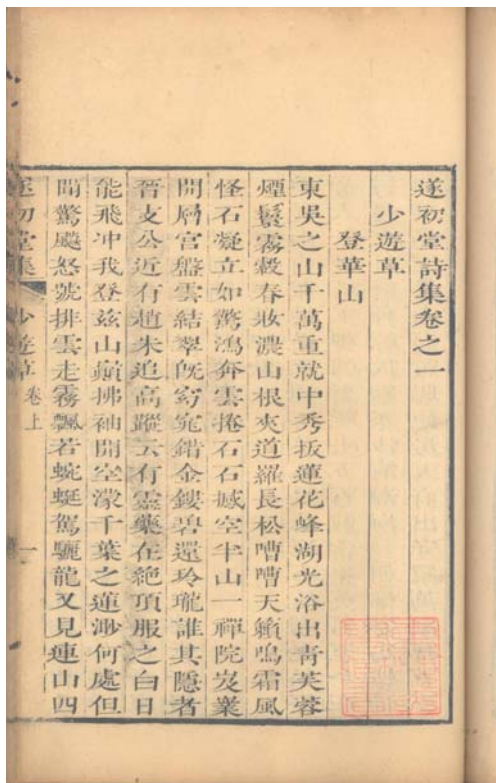 遂初堂詩集卷之一
少遊草
登華山
東吳之山千萬重就中秀拔蓮花峰湖光浴出青芙蓉
煙鬟霧縠春妝濃山根夾道羅長松嘈嘈天籟鳴霜風
怪石凝立如驚鴻奔雲捲石石撼空半山一禪院岌嶪
開層宮盤雲結翠旣窈窕錯金鏤碧還玲瓏誰其隱者
晉支公近有趙朱追高蹤云有靈藥在絶頂服之白日
能飛冲我登兹山巔拂袖開空濛千葉之蓮渺何處但
聞驚飈怒號排雲走霧飄若蜿蜒駕驪龍又見連山四
遂初堂集 少遊草 卷上 一